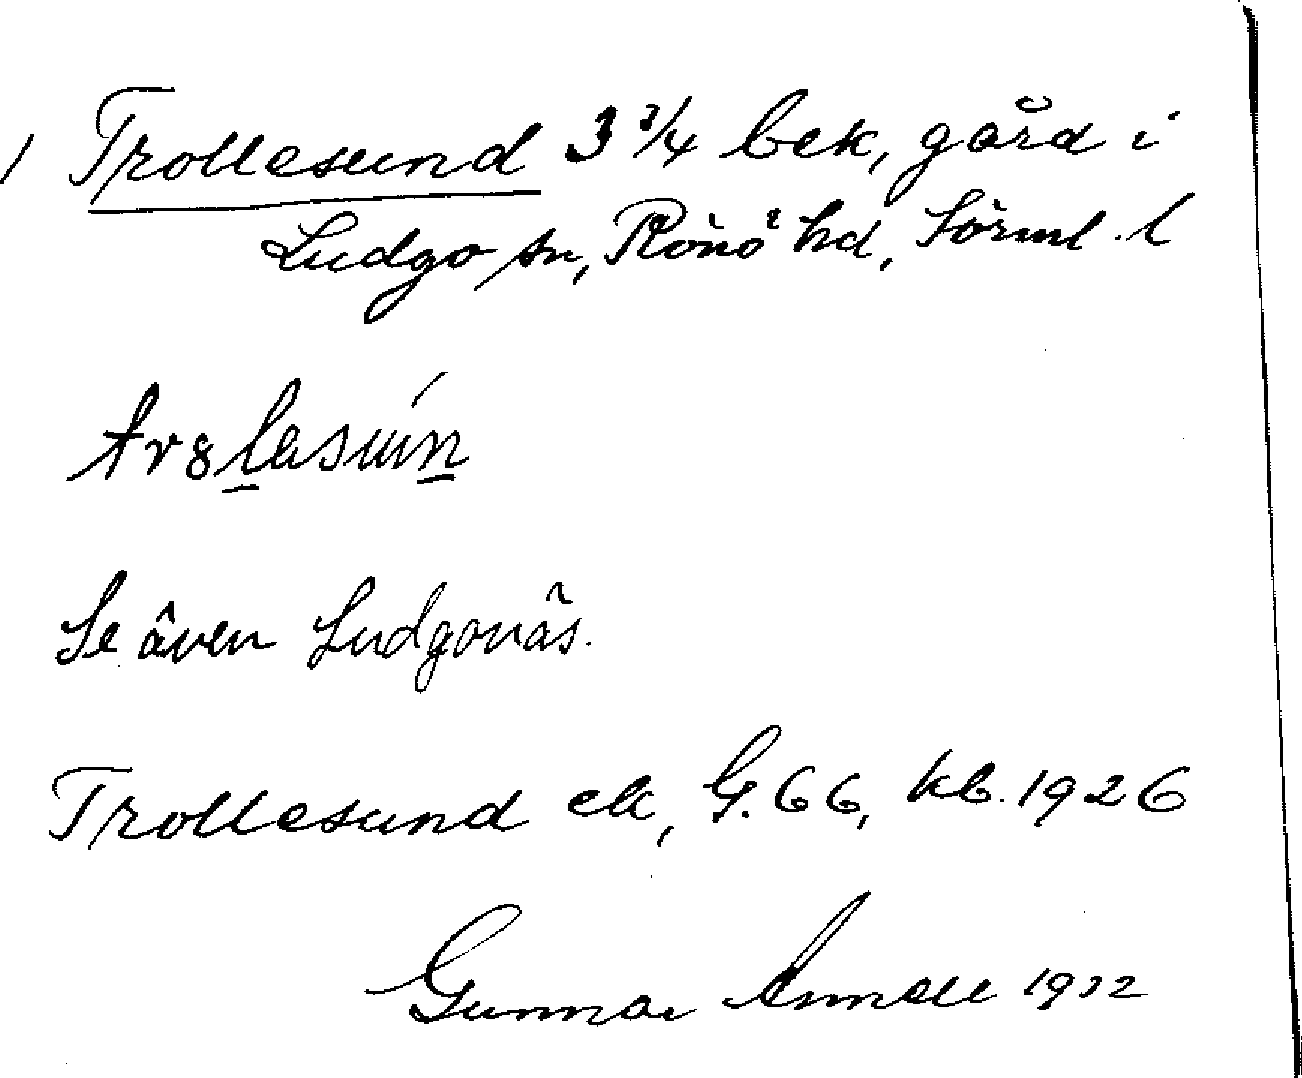 / Trollesund 3 3/4 bek, gård i
Ludgo sn, Rönö hd, Sörml. l
Se även Ludgonäs.
Trollesund ek, G. 66, kb. 1926
Gunnar 1932